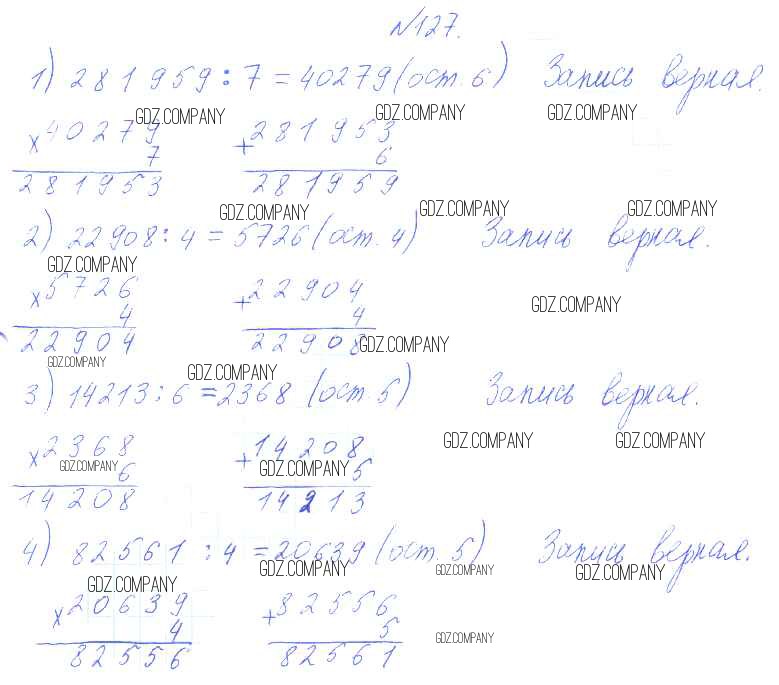 №127.
1) 281959 : 7 = 40279 (ост. 6) Запись верная.
GDZ.COMPANY GDZ.COMPANY GDZ.COMPANY
× 40279 + 281953
7 6
281953 281959
GDZ.COMPANY GDZ.COMPANY GDZ.COMPANY
2) 22908 : 4 = 5726 (ост. 4) Запись верная.
GDZ.COMPANY
× 5726 + 22904 GDZ.COMPANY
4 4
22904 22908 GDZ.COMPANY
GDZ.COMPANY GDZ.COMPANY
3) 14213 : 6 = 2368 (ост. 5) Запись верная.
× 2368 + 14208 GDZ.COMPANY GDZ.COMPANY
GDZ.COMPANY 6 GDZ.COMPANY 5
14208 14213
4) 82561 : 4 = 20639 (ост. 5) Запись верная.
GDZ.COMPANY GDZ.COMPANY GDZ.COMPANY GDZ.COMPANY
× 20639 + 82556
4 5 GDZ.COMPANY
82556 82561